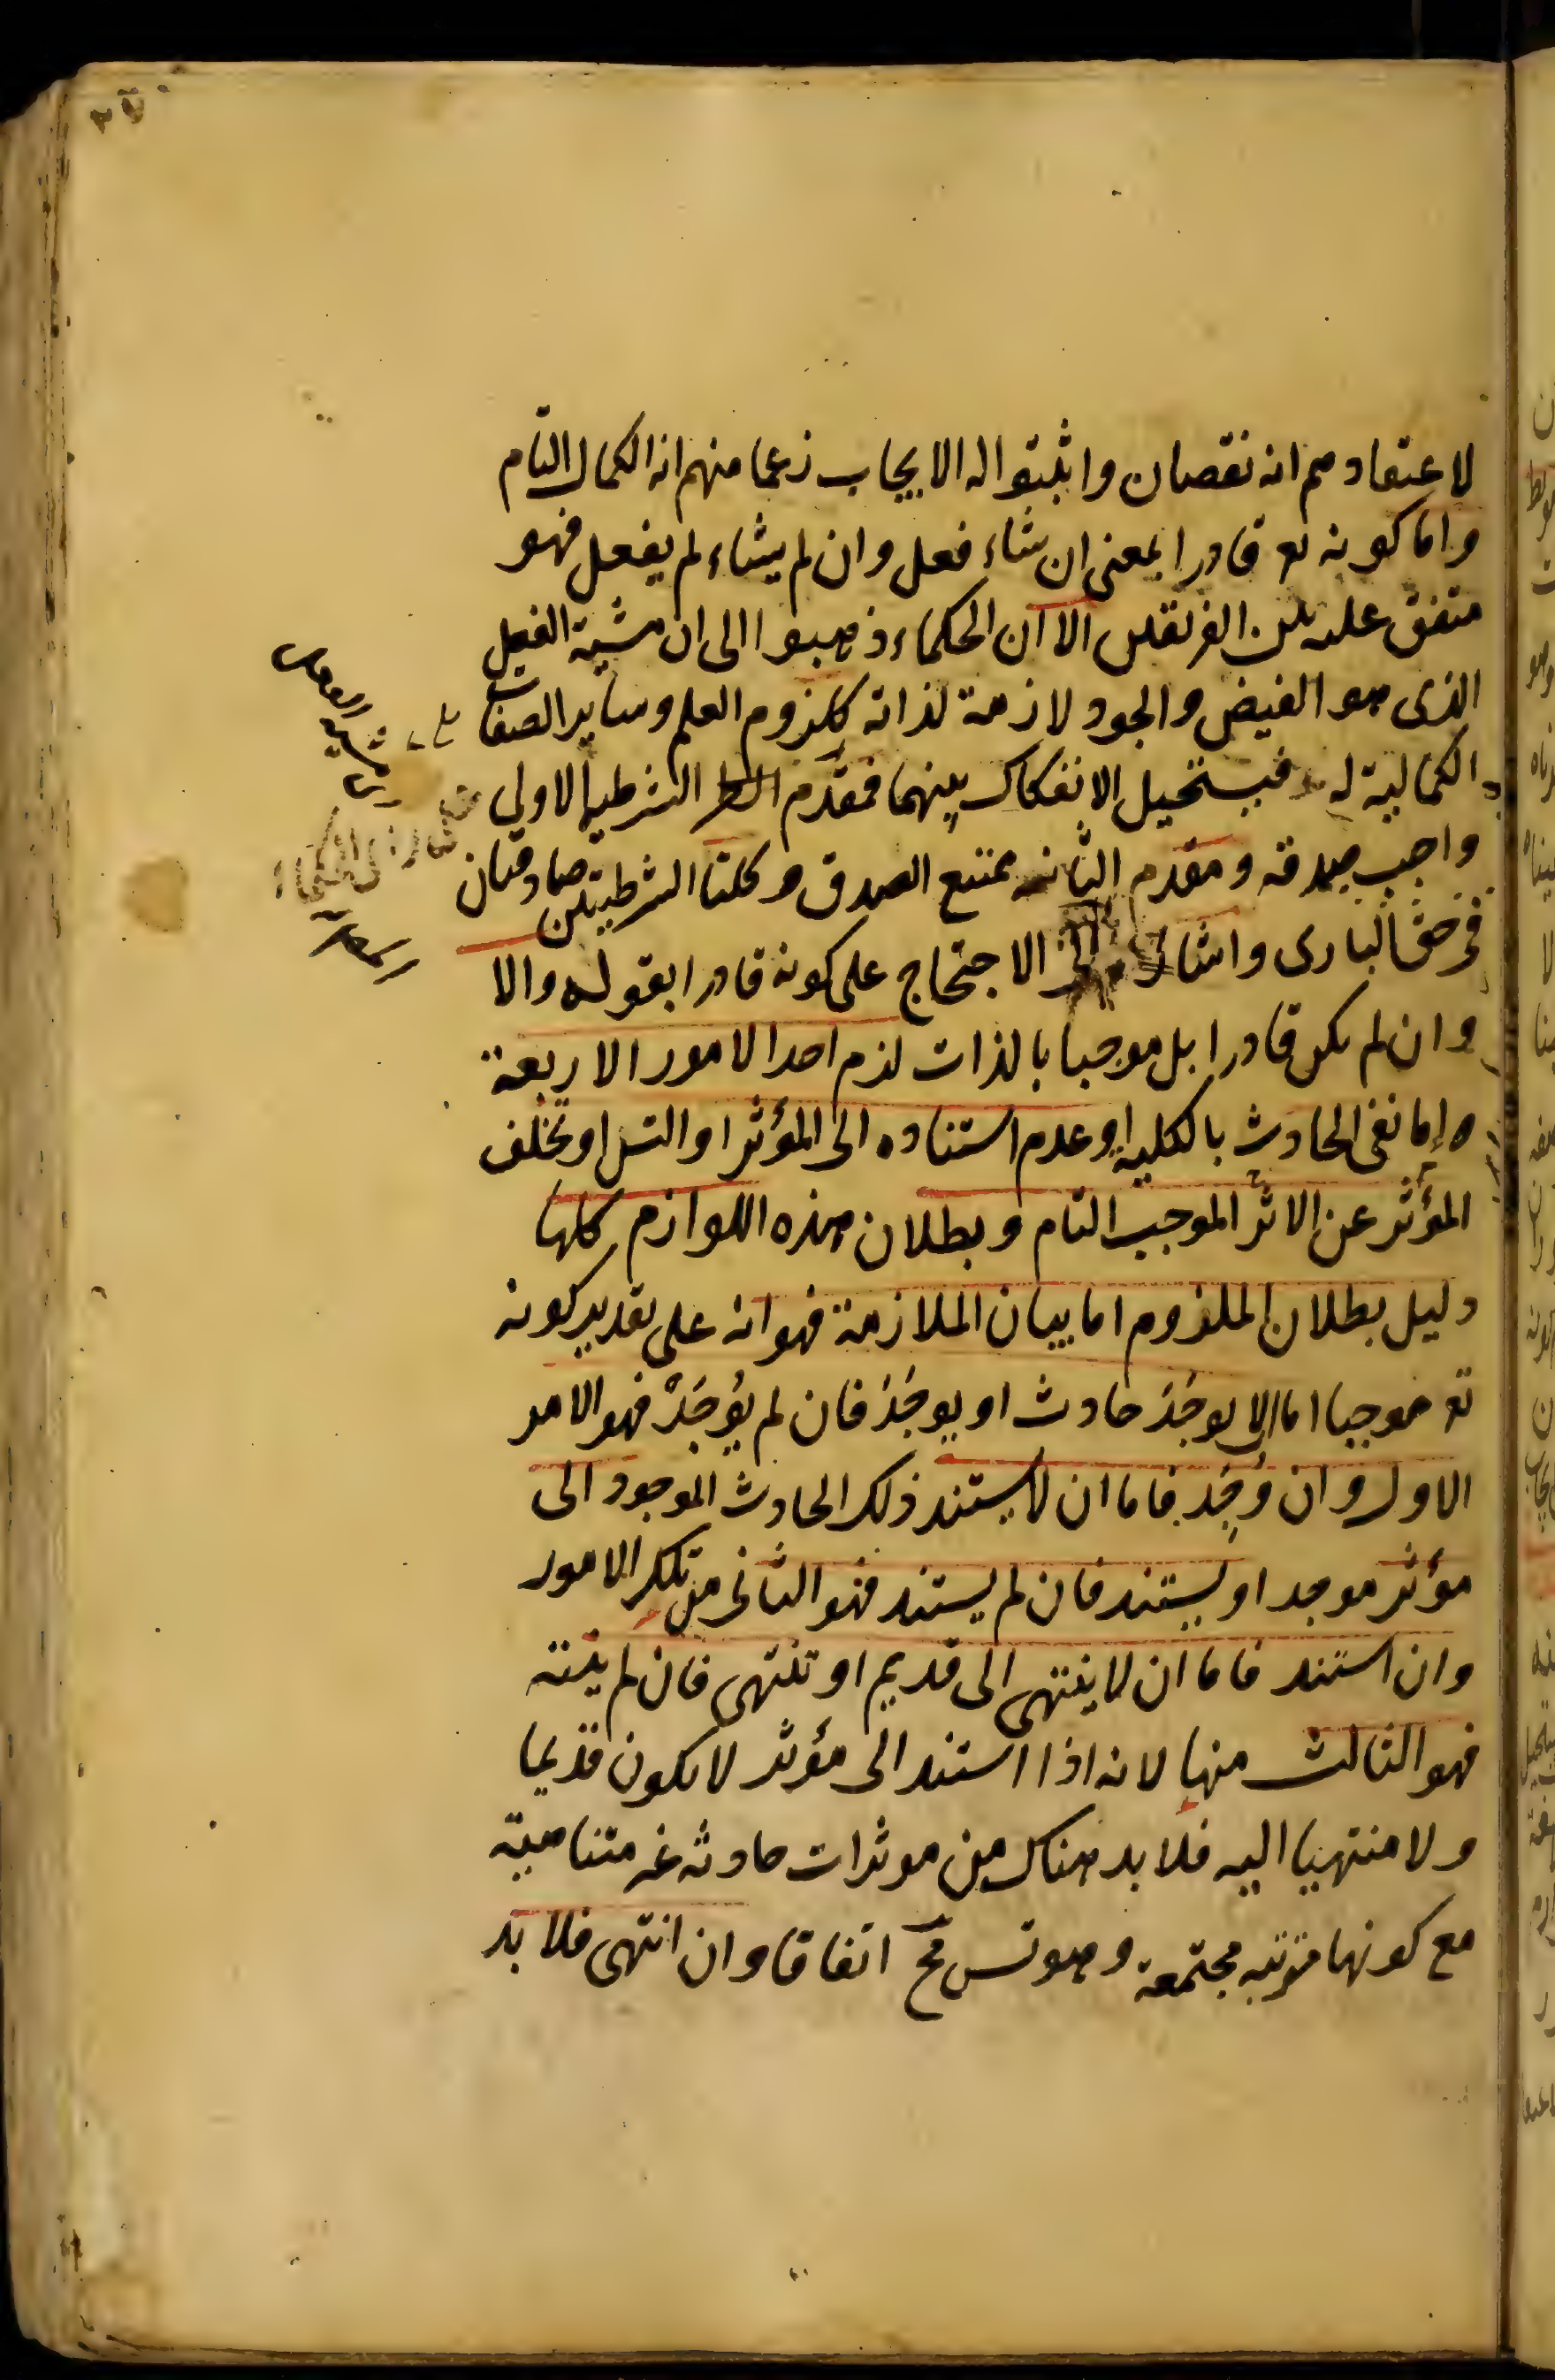 لاعتقادهم انه نقصان واثبتوا له الايجاب زعما منهم انه الكمال التام
واما كونه تع قادرا بمعنى ان شاء فعل وان لم يشاء لم يفعل فهو
متفق عليه بين الفريقين الا ان الحكماء ذهبوا الى ان مشية الفعل
الذى هو الفيض والجود لازمة لذاته كلزوم العلم وساير الصفات
الكمالية له فيستحيل الانفكاك بينهما فمقدم الشرطية الاولى
واجب صدقه ومقدم الثانية ممتنع الصدق وكلتا الشرطيتين صادقتان
فى حق البارى واشار الى الاحتجاج على كونه قادرا بقوله والا
وان لم يكن قادرا بل موجبا بالذات لزم احد الامور الاربعة
اما نفى الحادث بالكلية او عدم استناده الى المؤثر او التس او تخلف
المؤثر عن الاثر الموجب التام وبطلان هذه اللوازم كلها
دليل بطلان الملزوم اما بيان الملازمة فهو انه على تقدير كونه
تع موجبا اما ان لا يوجد حادث او يوجد فان لم يوجد فهو الامر
الاول وان وجد فاما ان لا يستند ذلك الحادث الموجود الى
مؤثر موجد او يستند فان لم يستند فهو الثانى من تلك الامور
وان استند فاما ان لا ينتهى الى قديم او تنتهى فان لم ينته
فهو الثالث منها لانه اذا استند الى مؤثر لا يكون قديما
ولا منتهيا اليه فلا بد هناك من موثرات حادثه غير متناهية
مع كونها مترتبه مجتمعة وهو تس مح اتفاقا وان انتهى فلا بد